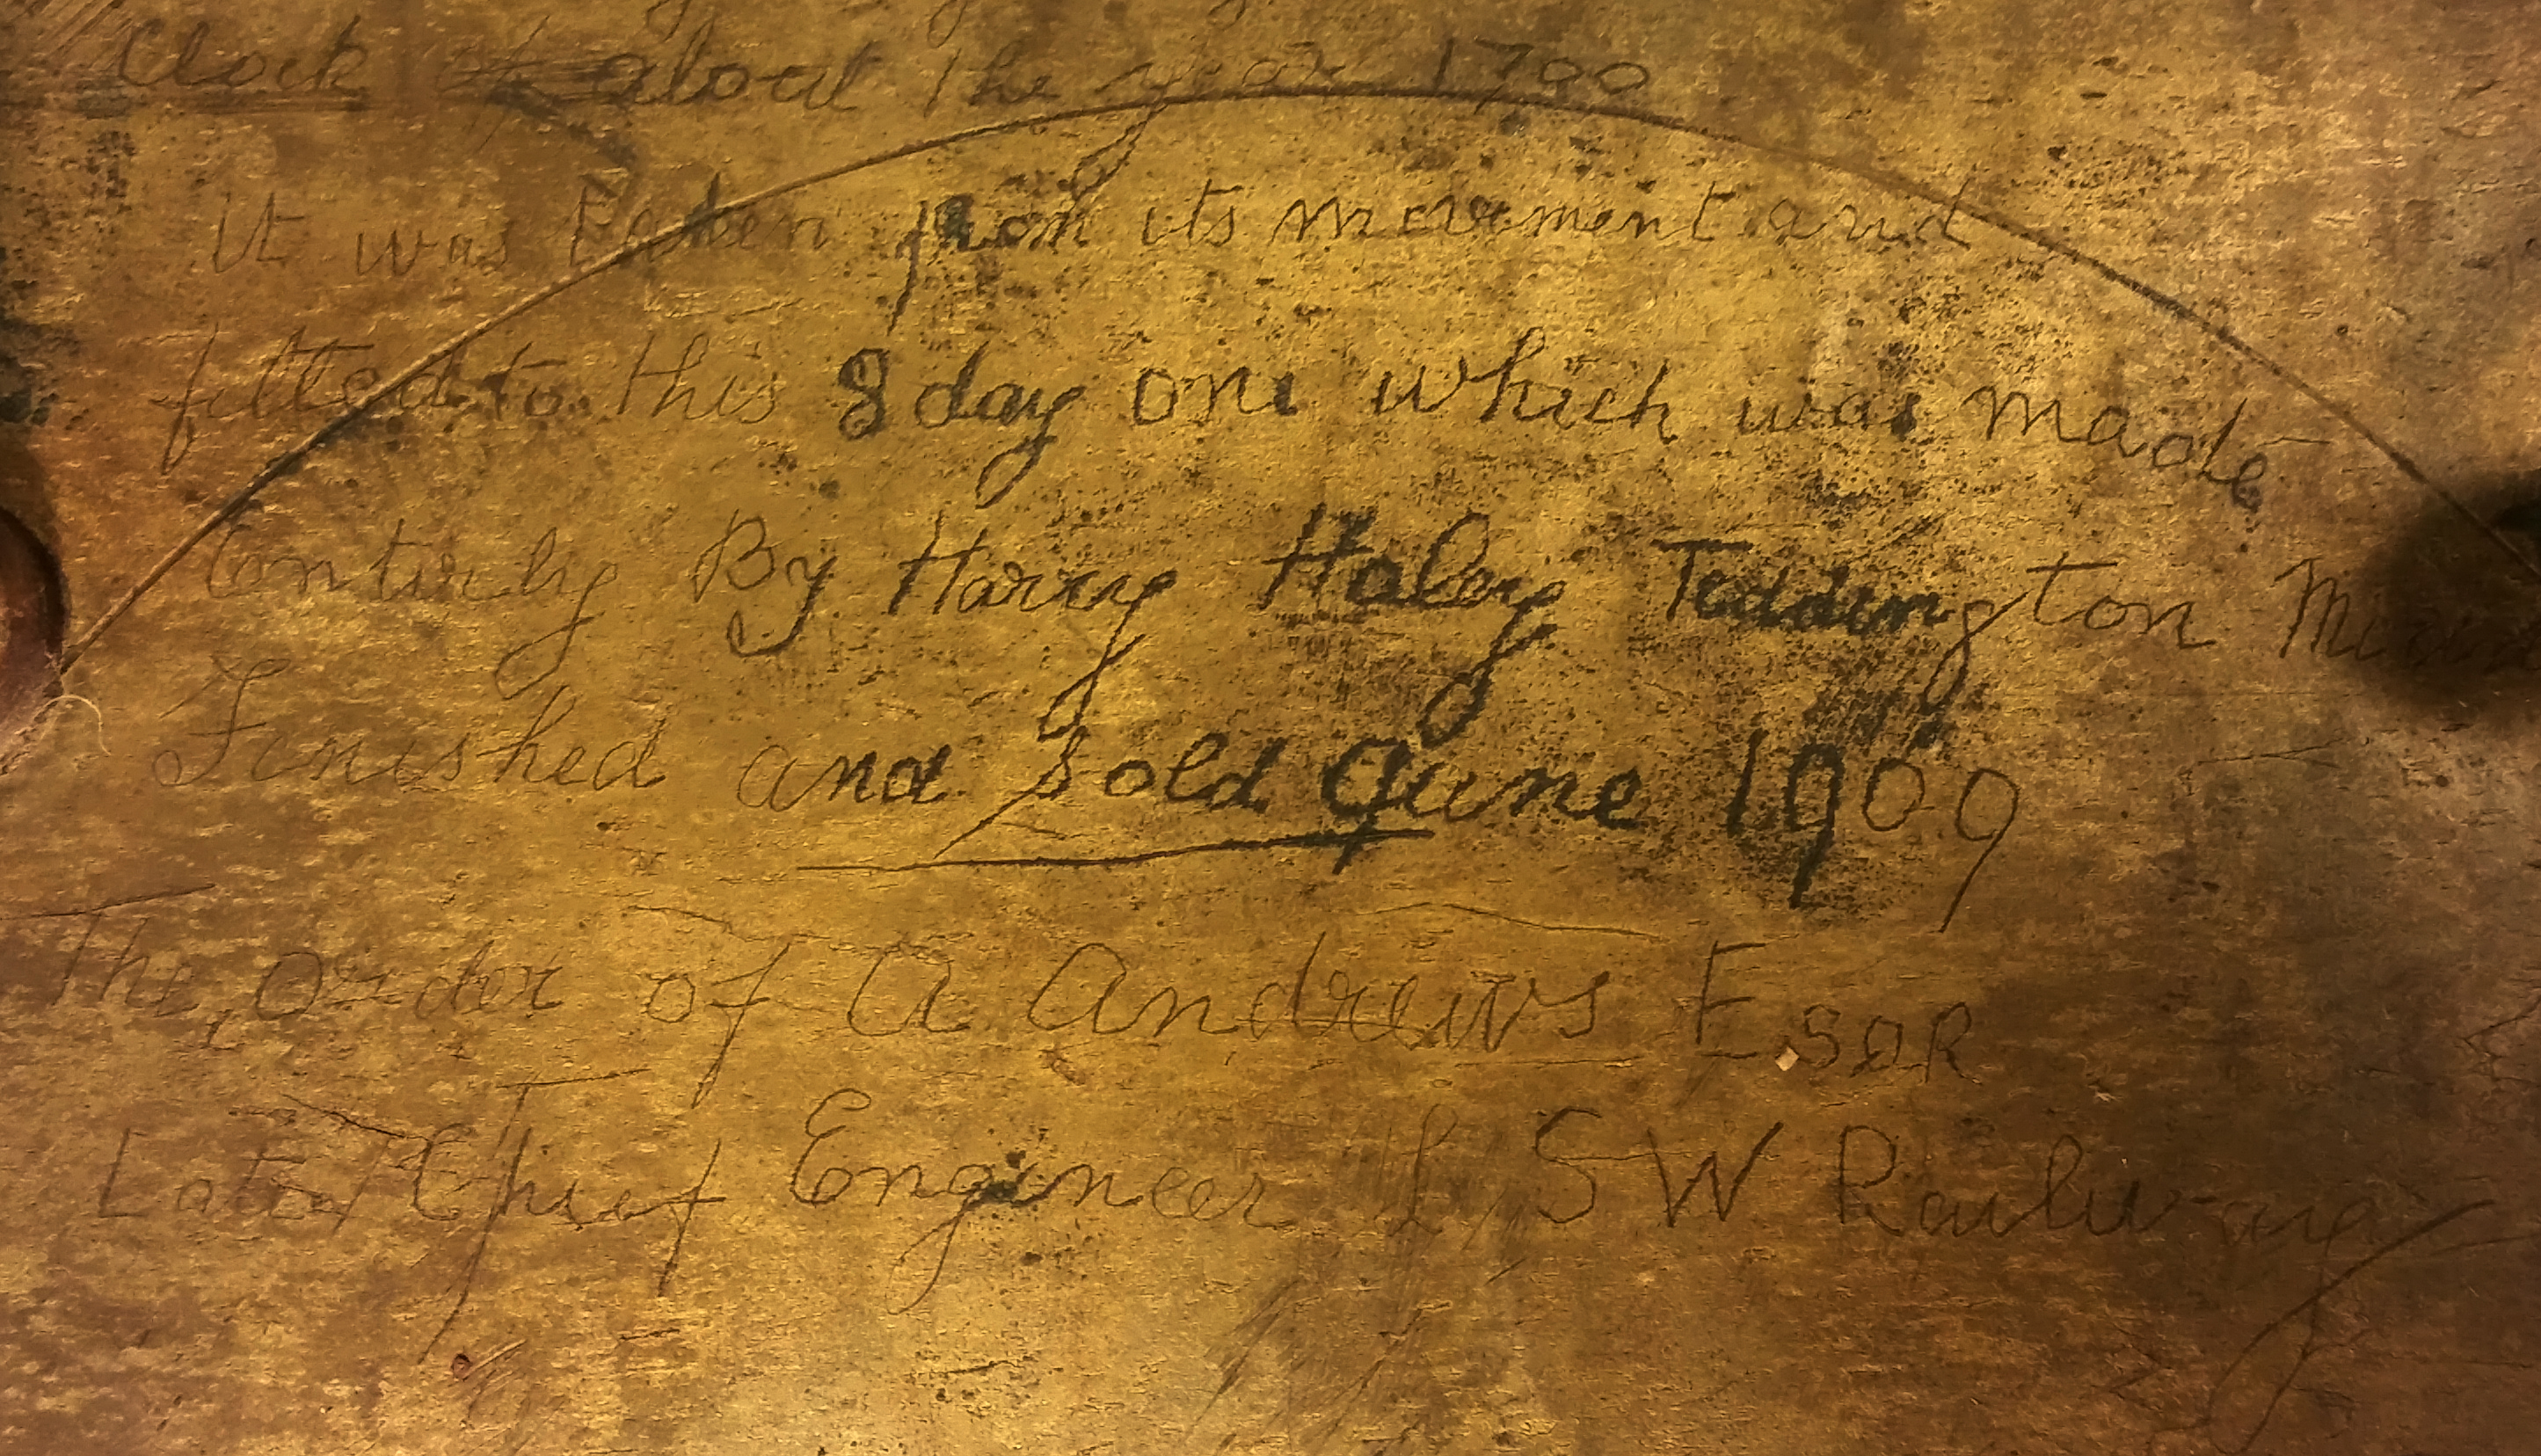 Clock of about the year 1700
it was taken from its movement and
fitted to this 8 day one which was made
Entirly By Harry Haley Teddington
Finished and Sold June 1909
The order of A Andrews ESQR
Late Chief Engineer L S W Railway